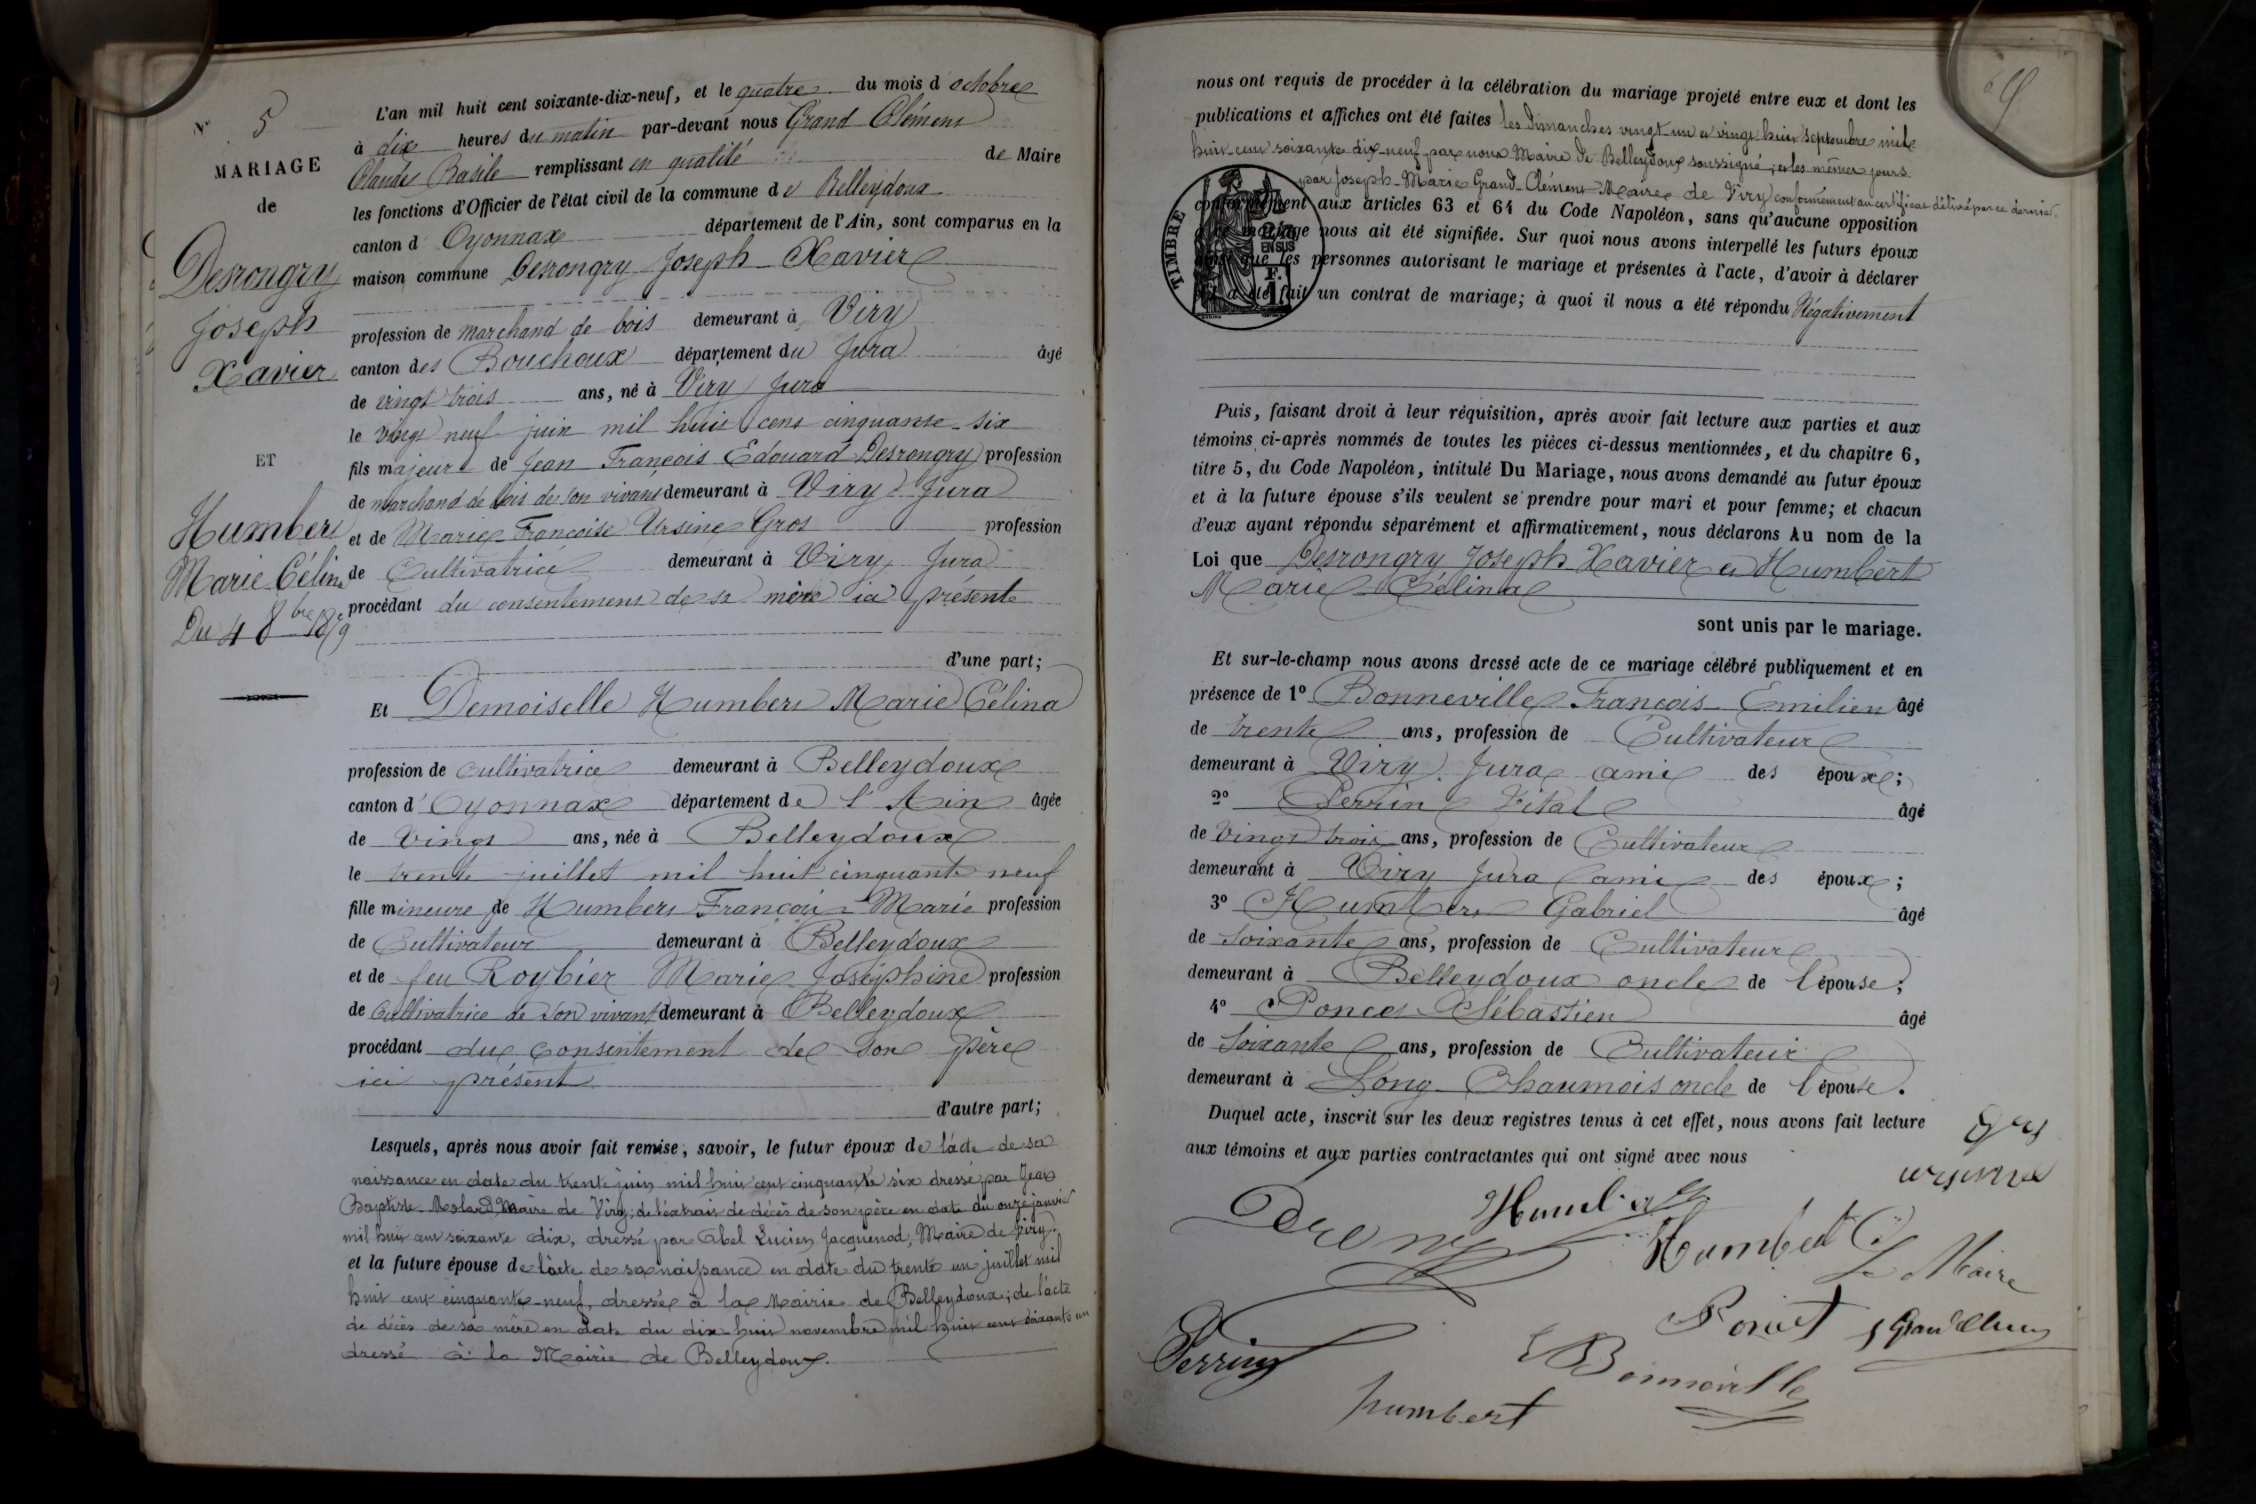 N° 5
MARIAGE
de
Desrongry
Joseph
Xavier
ET
Humbert
Marie Célina
Du 4 8bre 1879
L'an mil huit cent soixante-dix-neuf, et le quatre du mois d'octobre
à dix heures du matin par-devant nous Grand Clément
Claude Basile remplissant en qualité de Maire
les fonctions d'Officier de l'état civil de la commune de Belleydoux
canton d'Oyonnax département de l'Ain, sont comparus en la
maison commune Desrongry Joseph Xavier
profession de marchand de bois demeurant à Viry
canton des Bouchoux département du Jura âgé
de vingt trois ans, né à Viry Jura
le vingt neuf juin mil huit cent cinquante-six
fils majeur de Jean François Edouard Desrongry profession
de marchand de bois de son vivant demeurant à Viry Jura
et de Marie Françoise Ursine Gros profession
de Cultivatrice demeurant à Viry Jura
procédant du consentement de sa mère ici présente
d'une part;
Et Demoiselle Humbert Marie Célina
profession de cultivatrice demeurant à Belleydoux
canton d'Oyonnax département de l'Ain âgée
de vingt ans, née à Belleydoux
le trente juillet mil huit cinquante neuf
fille mineure de Humbert François-Marie profession
de Cultivateur demeurant à Belleydoux
et de feu Roybier Marie Joséphine profession
de Cultivatrice de son vivant demeurant à Belleydoux
procédant du consentement de son père
ici présent
d'autre part;
Lesquels, après nous avoir fait remise, savoir, le futur époux de l'acte de sa
naissance en date du trente juin mil huit cent cinquante six dressé par Jean
Baptiste Molard Maire de Viry; de l'extrait de décès de son père en date du onze janvier
mil huit cent soixante dix, dressé par Abel Lucien Jacquenod, Maire de Viry.
et la future épouse de l'acte de sa naissance en date du trente un juillet mil
huit cent cinquante-neuf, dressée à la Mairie de Belleydoux; de l'acte
de décès de sa mère en date du dix-huit novembre mil huit cent soixante un
dressé à la Mairie de Belleydoux.
nous ont requis de procéder à la célébration du mariage projeté entre eux et dont les
publications et affiches ont été faites les dimanches vingt-un et vingt huit septembre mil
huit-cent soixante dix-neuf par nous Maire de Belleydoux soussigné; et les mêmes jours
par Joseph-Marie Grand-Clément Maire de Viry conformément au certificat délivré par ce dernier.
conformément aux articles 63 et 64 du Code Napoléon, sans qu'aucune opposition
mariage nous ait été signifiée. Sur quoi nous avons interpellé les futurs époux
que les personnes autorisant le mariage et présentes à l'acte, d'avoir à déclarer
a été fait un contrat de mariage; à quoi il nous a été répondu Négativement
TIMBRE
EN SUS
F.
1
Puis, faisant droit à leur réquisition, après avoir fait lecture aux parties et aux
témoins ci-après nommés de toutes les pièces ci-dessus mentionnées, et du chapitre 6,
titre 5, du Code Napoléon, intitulé Du Mariage, nous avons demandé au futur époux
et à la future épouse s'ils veulent se prendre pour mari et pour femme; et chacun
d'eux ayant répondu séparément et affirmativement, nous déclarons Au nom de la
Loi que Desrongry Joseph Xavier et Humbert
Marie Célina
sont unis par le mariage.
Et sur-le-champ nous avons dressé acte de ce mariage célébré publiquement et en
présence de 1° Bonneville François Emilien âgé
de trente ans, profession de Cultivateur
demeurant à Viry Jura ami des époux;
2° Perrin Vital âgé
de Vingt trois ans, profession de Cultivateur
demeurant à Viry Jura ami des époux;
3° Humbert Gabriel âgé
de soixante ans, profession de Cultivateur
demeurant à Belleydoux oncle de l'épouse;
4° Poncet Sébastien âgé
de soixante ans, profession de Cultivateur
demeurant à Long-Chaumois oncle de l'épouse.
Duquel acte, inscrit sur les deux registres tenus à cet effet, nous avons fait lecture
aux témoins et aux parties contractantes qui ont signé avec nous
ursine
Humbert
Humbert C
Le Maire
Poncet
Perrin
Bonneville
humbert